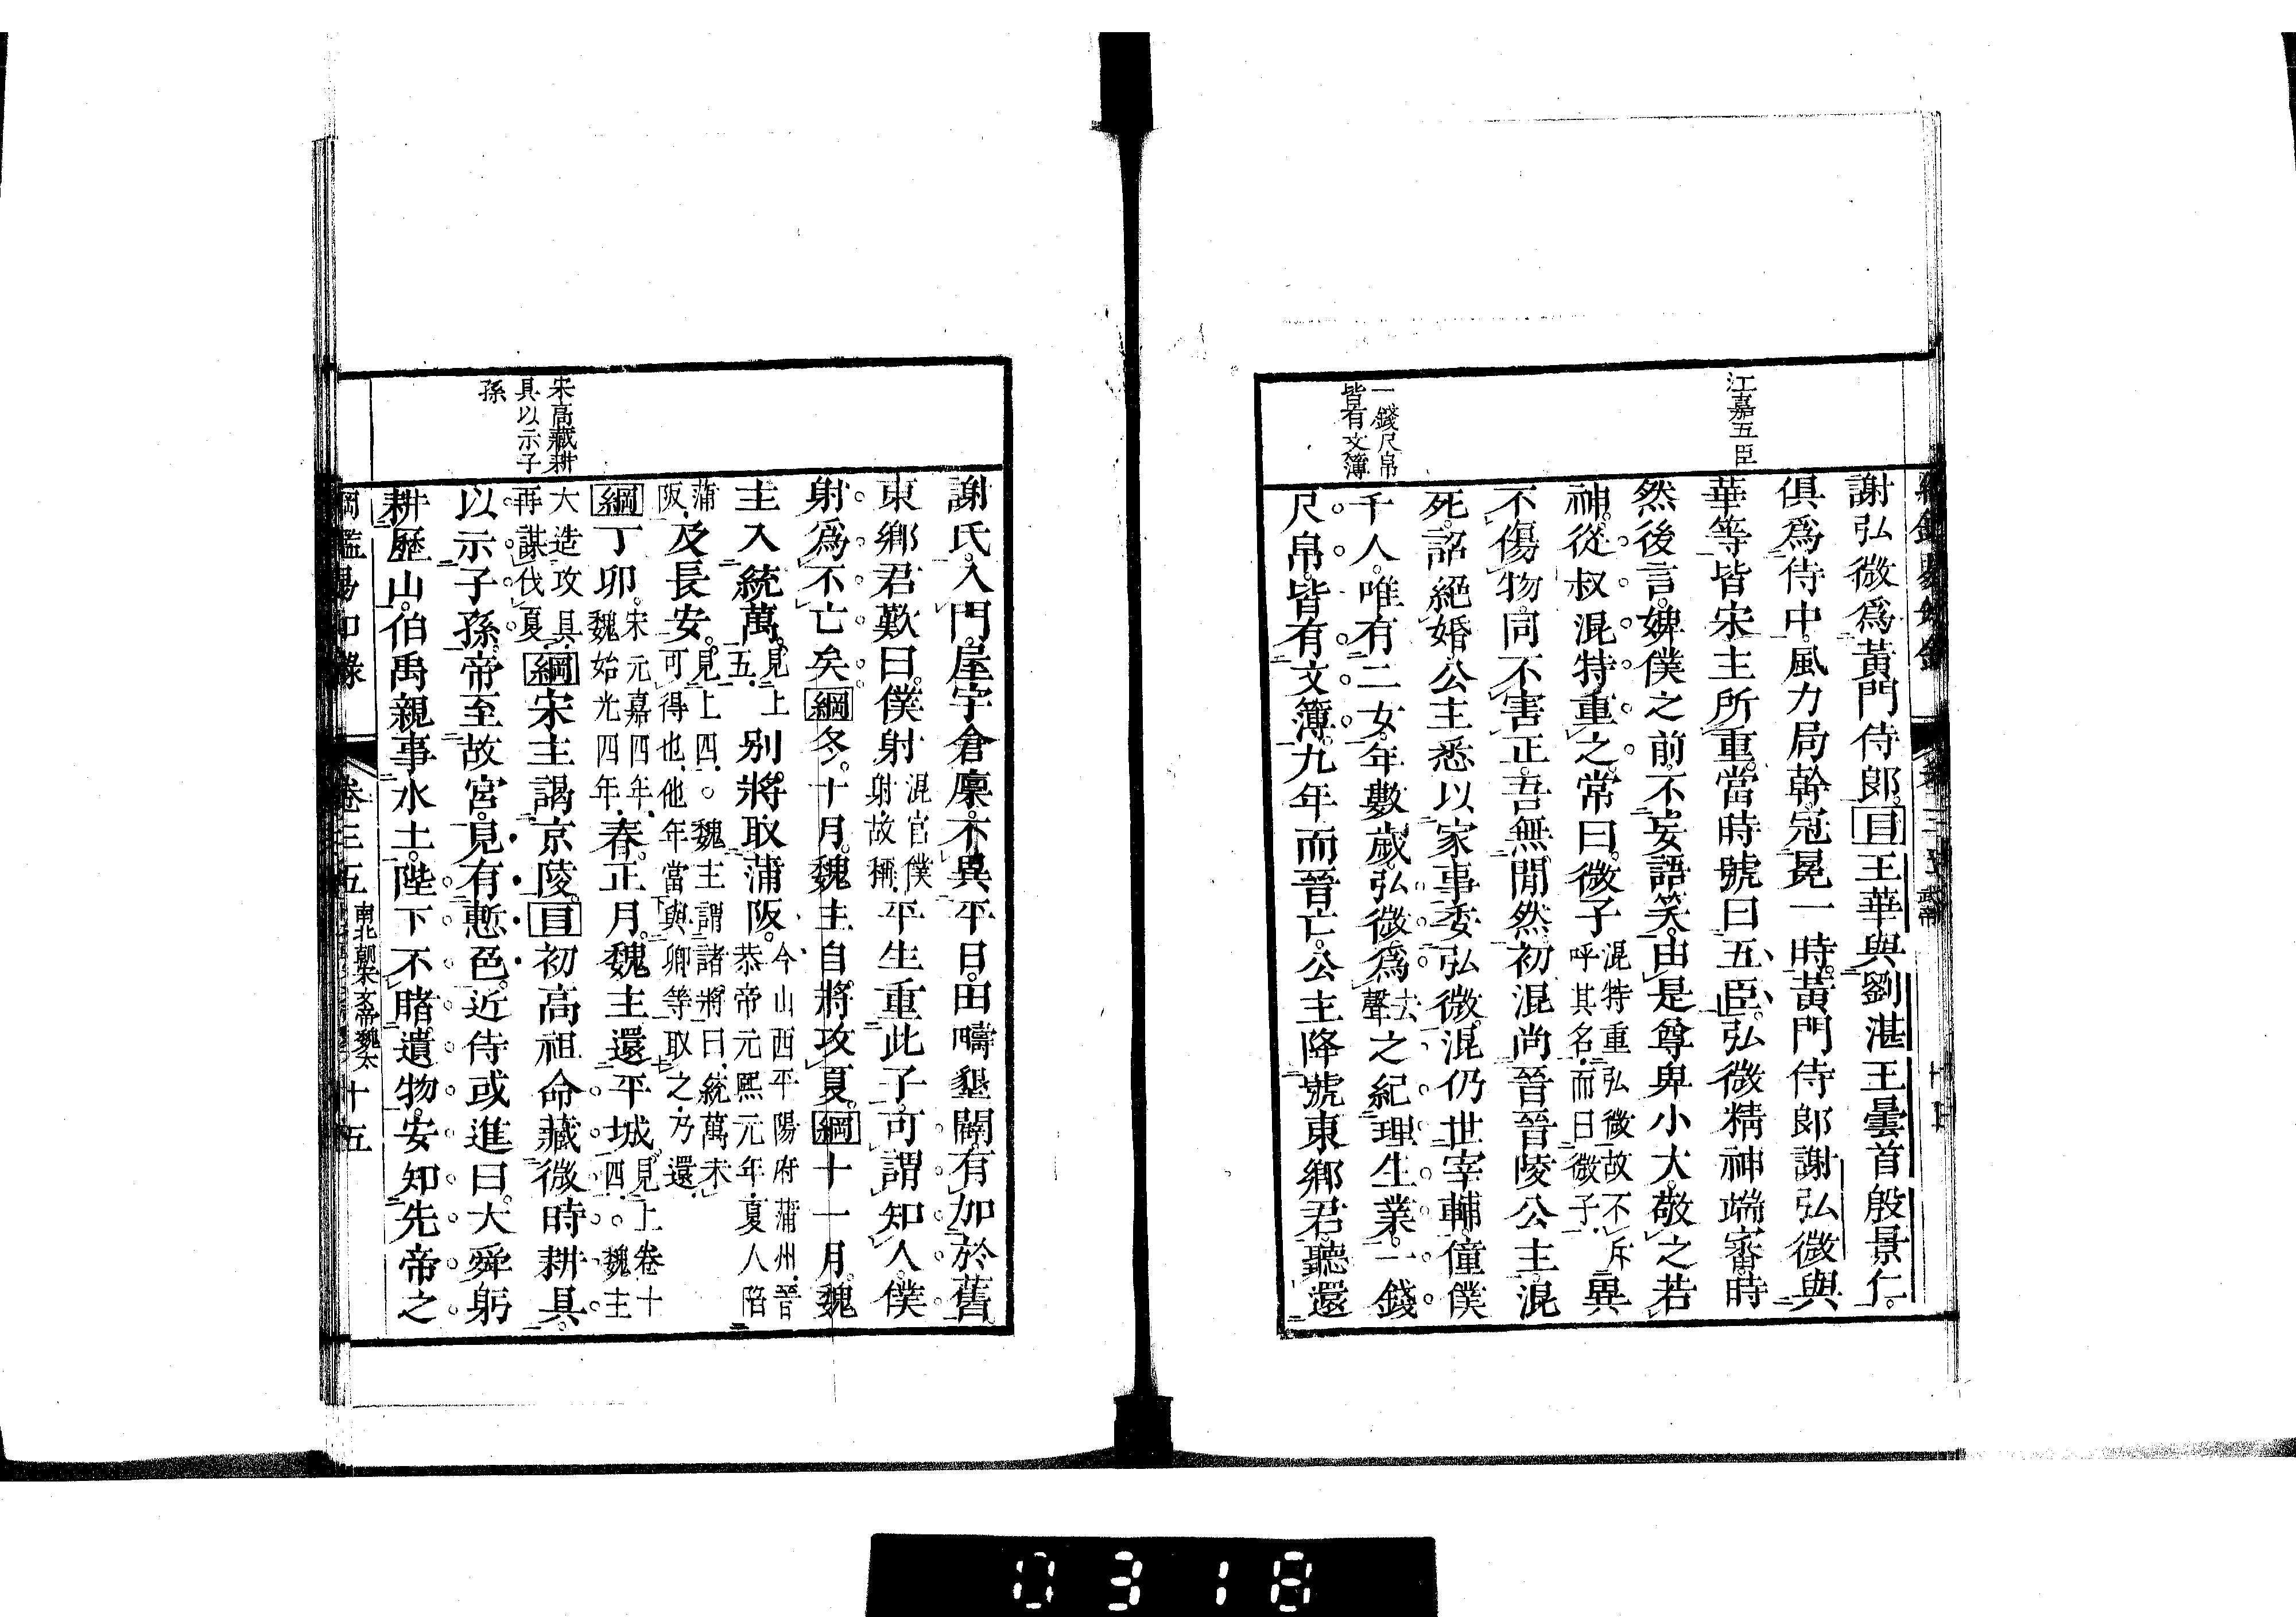 江嘉五臣
一錢尺帛
皆有文簿
謝弘微爲黃門侍郎。目王華與劉湛王曇首殷景仁。
俱爲侍中。風力局幹。冠冕一時。黃門侍郎謝弘微與
華等皆宋主所重。當時號曰五臣。弘微精神端審。時
然後言。婢僕之前。不妄語笑。由是尊卑小大。敬之若
神。從叔混特重之。常曰。微子混特重弘微故不斥呼其名而曰微子異
不傷物。同不害正。吾無間然。初混尚晉晉陵公主。混
死。詔絕婚。公主悉以家事委弘微。混仍世宰輔。僮僕
千人。唯有二女。年數歲。弘微爲去聲之紀理生業。一錢
尺帛。皆有文簿。九年而晉亡。公主降號東鄉君。聽還
宋高藏耕
具以示子
孫
謝氏。入門。屋宇倉廩。不異平日。田疇墾闢。有加於舊。
東鄉君歎曰。僕射混官僕射。故稱。平生重此子。可謂知人。僕
射爲不亡矣。綱冬。十月。魏主自將攻夏。綱十一月。魏
主入統萬。見上五。別將取蒲阪。今山西平陽府蒲州。晉恭帝元熙元年。夏人陷
蒲阪。及長安。見上四。○魏主謂諸將曰。統萬未可得也。他年當與卿等取之。乃還。
綱丁卯。宋元嘉四年。魏始光四年。春。正月。魏主還平城。見上卷十四。○魏主
大造攻具。再謀伐夏。綱宋主謁京陵。目初高祖命藏微時耕具。
以示子孫。帝至故宮。見有慙色。近侍或進曰。大舜躬
耕歷山。伯禹親事水土。陛下不睹遺物。安知先帝之
綱鑑易知錄 卷三五 南北朝宋文帝魏太 十五